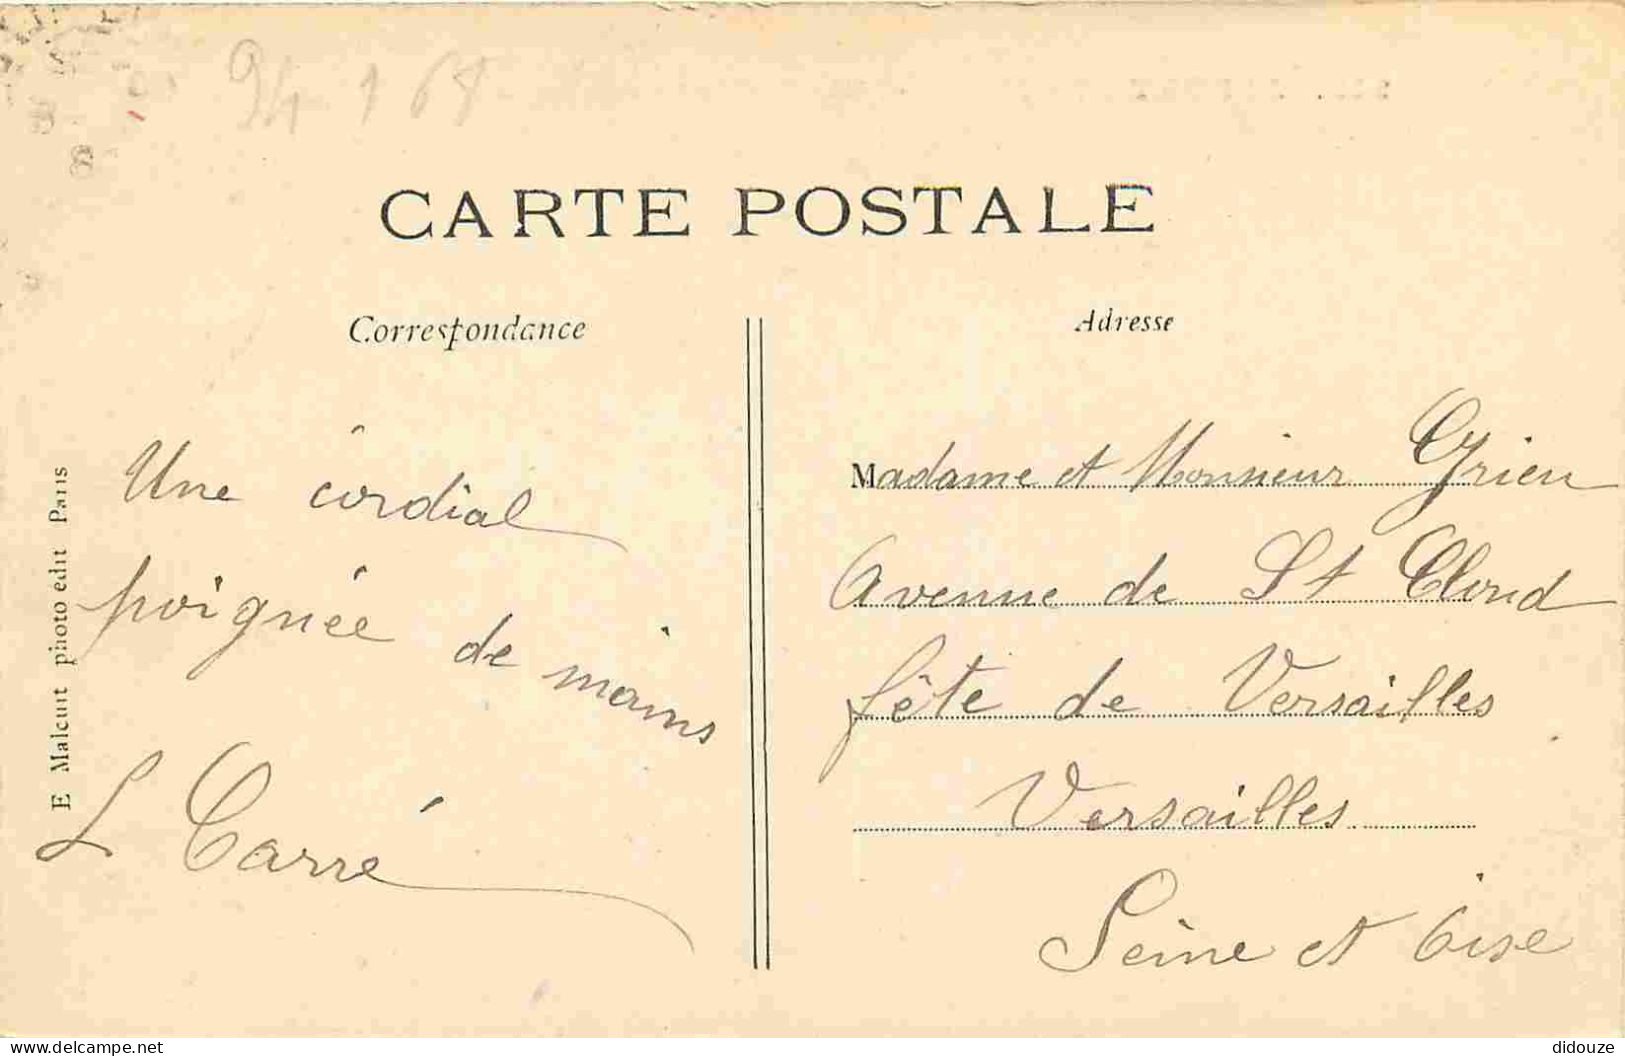 94 1 68
CARTE POSTALE
Correspondance
Adresse
Une cordial
poignée de mains
L Carré
Madame et Monsieur Grieu
Avenue de St Cloud
fête de Versailles
Versailles
Seine et Oise
E Malcuit photo edit Paris
delcampe.net
didouze